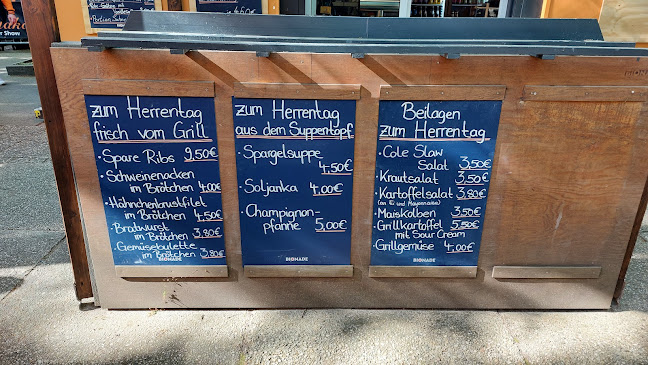 Portion Salat
zum Herrentag
frisch vom Grill
• Spare Ribs 9,50€
• Schweinenacken
im Brötchen 4,00€
• Hähnchenbrustfilet
im Brötchen 4,50€
• Bratwurst
im Brötchen 3,80€
• Gemüsebulette
im Brötchen 3,80€
BIONADE
zum Herrentag
aus dem Suppentopf
• Spargelsuppe
4,50€
• Soljanka 4,00€
• Champignon-
pfanne 5,00€
BIONADE
Beilagen
zum Herrentag
• Cole Slaw
Salat 3,50€
• Krautsalat 3,50€
• Kartoffelsalat 3,80€
(an Ei und Mayonnaise)
• Maiskolben 3,50€
• Grillkartoffel 5,50€
mit Sour Cream
• Grillgemüse 4,00€
BIONADE
BIONADE